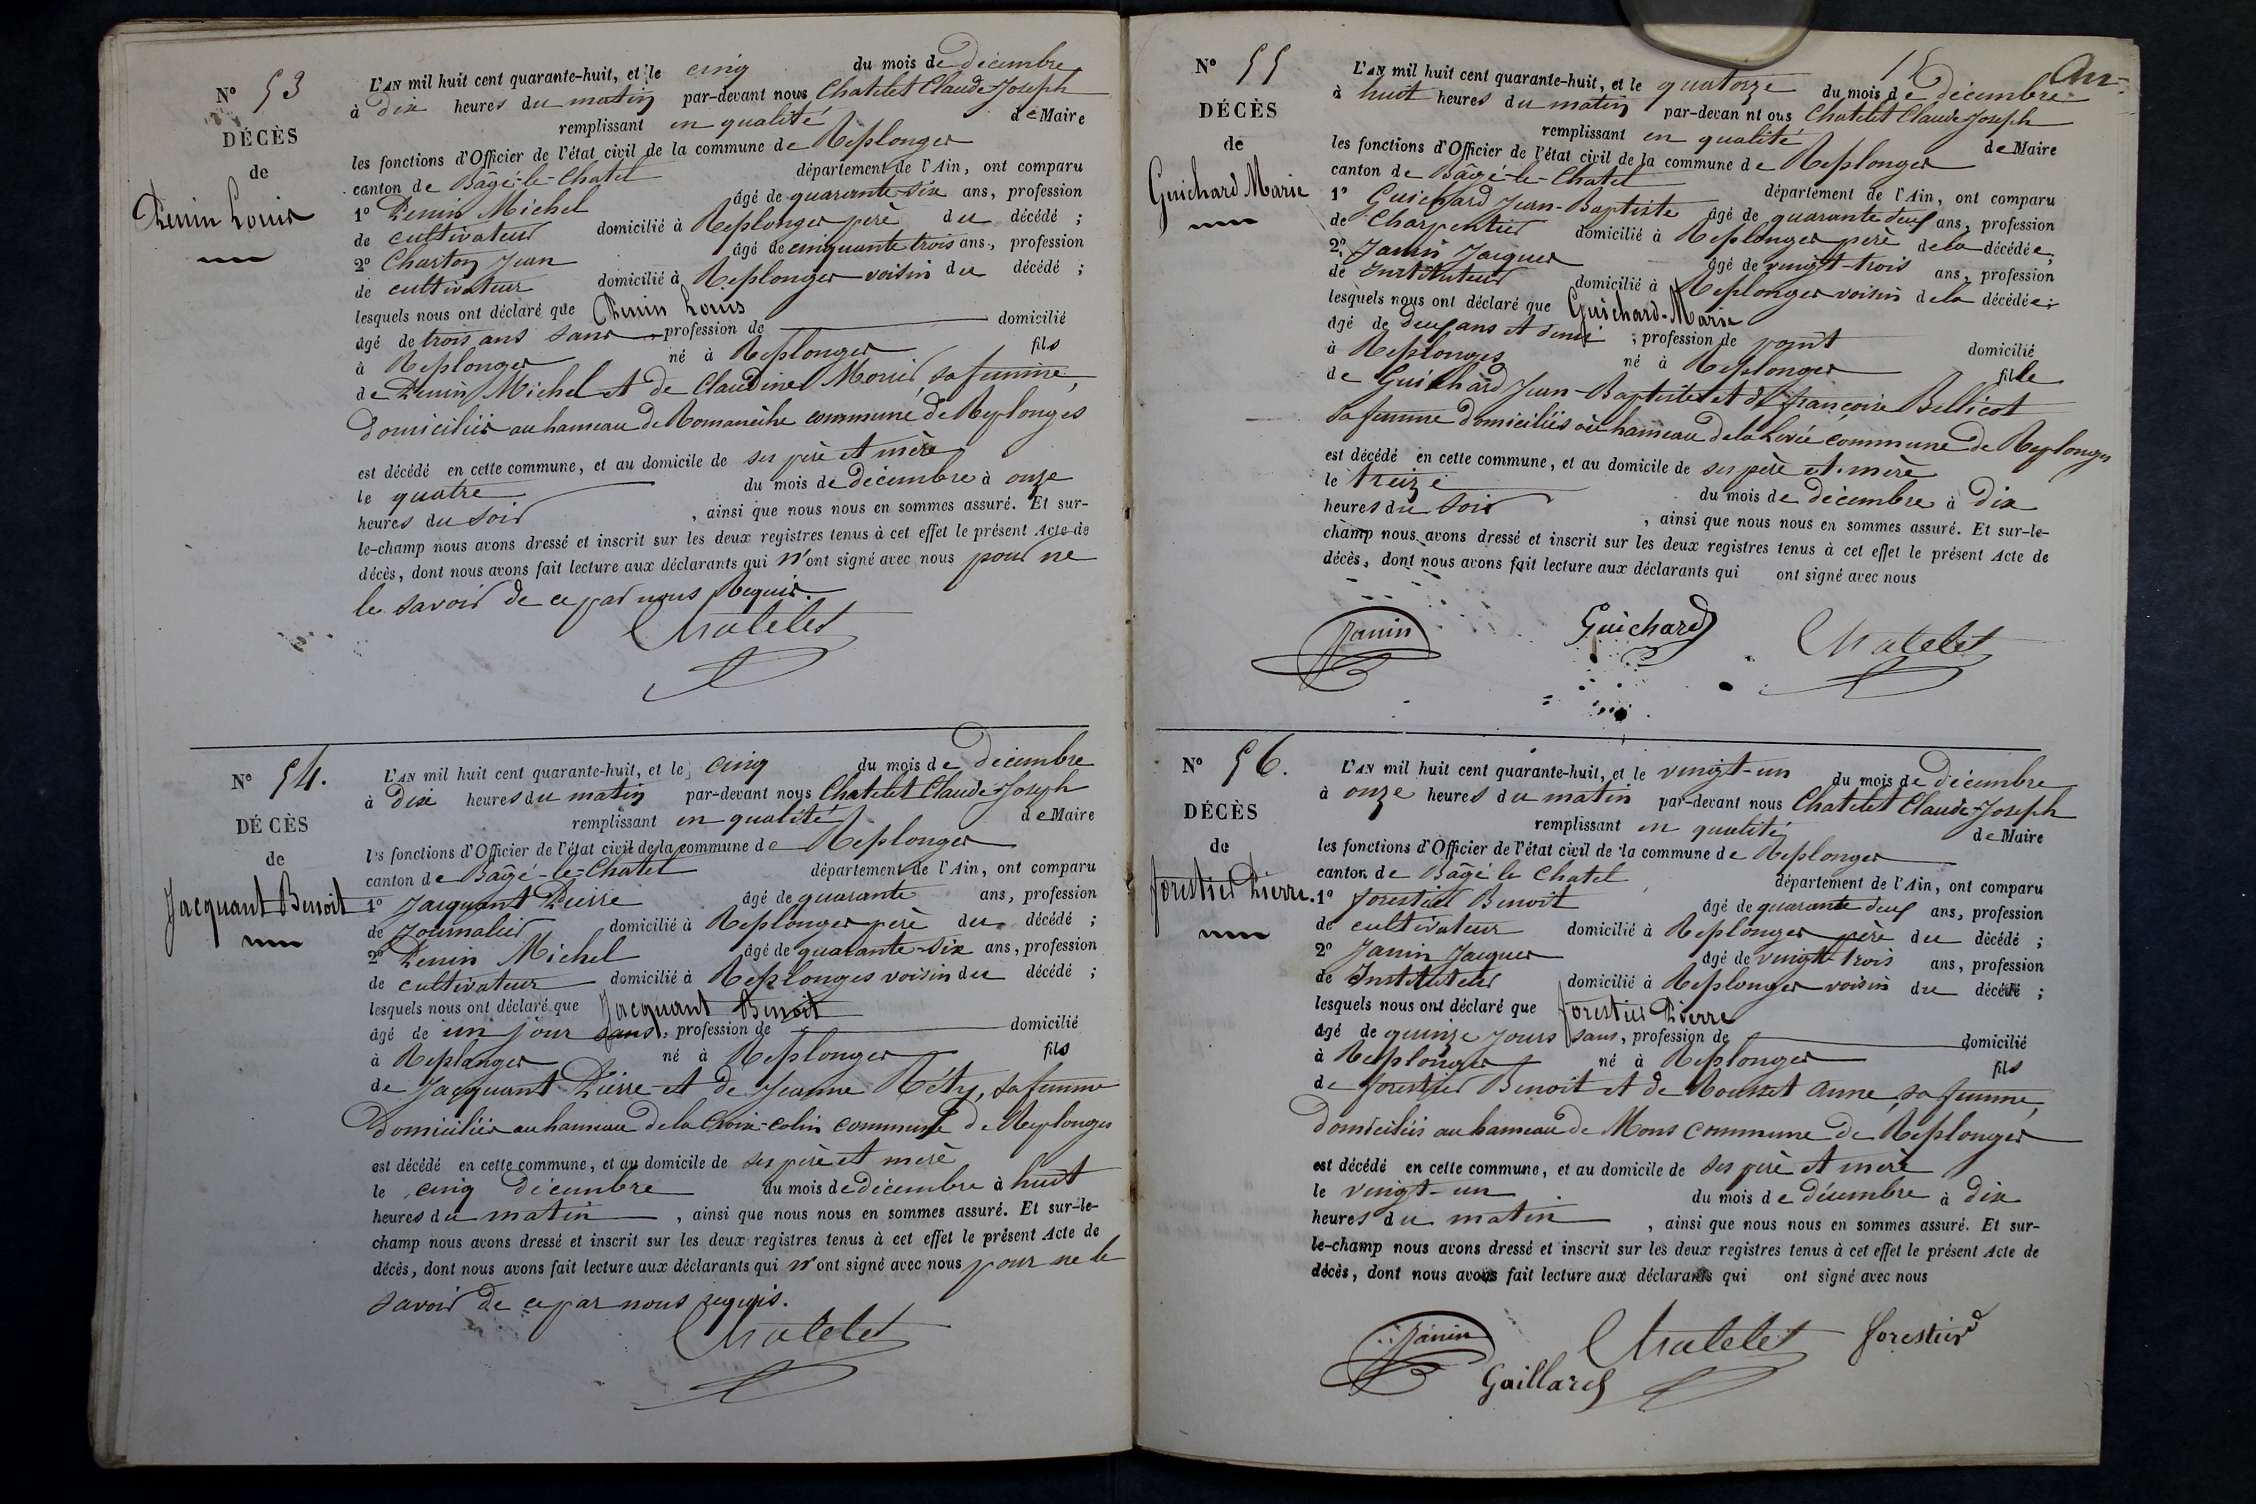 N° 53
DÉCÈS
de
Penin Louis
L'AN mil huit cent quarante-huit, et le cinq du mois de décembre
à dix heures du matin par-devant nous Chatelet Claude-Joseph
remplissant en qualité de Maire
les fonctions d'Officier de l'état civil de la commune de Replonges
canton de Bâgé-le-Chatel département de l'Ain, ont comparu
1° Penin Michel âgé de quarante-six ans, profession
de cultivateur domicilié à Replonges père du décédé ;
2° Charton Jean âgé de cinquante trois ans, profession
de cultivateur domicilié à Replonges voisin du décédé ;
lesquels nous ont déclaré que Penin Louis
âgé de trois ans sans profession de domicilié
à Replonges né à Replonges fils
de Penin Michel et de Claudine Morier sa femme,
domiciliés au hameau de Romanèche commune de Replonges
est décédé en cette commune, et au domicile de ses père et mère
le quatre du mois de décembre à onze
heures du soir , ainsi que nous nous en sommes assuré. Et sur-
le-champ nous avons dressé et inscrit sur les deux registres tenus à cet effet le présent Acte de
décès, dont nous avons fait lecture aux déclarants qui n'ont signé avec nous pour ne
le savoir de ce par nous Requis.
Chatelet
N° 54.
DÉCÈS
de
Jacquant Benoit
L'AN mil huit cent quarante-huit, et le cinq du mois de décembre
à dix heures du matin par-devant nous Chatelet Claude-Joseph
remplissant en qualité de Maire
les fonctions d'Officier de l'état civil de la commune de Replonges
canton de Bâgé-le-Chatel département de l'Ain, ont comparu
1° Jacquant Pierre âgé de quarante ans, profession
de Journalier domicilié à Replonges père du décédé ;
2° Penin Michel âgé de quarante-six ans, profession
de cultivateur domicilié à Replonges voisin du décédé ;
lesquels nous ont déclaré que Jacquant Benoit
âgé de un jour sans, profession de domicilié
à Replonges né à Replonges fils
de Jacquant Pierre et de Jeanne Réty, sa femme
domiciliés au hameau de la Croix-Colin commune de Replonges
est décédé en cette commune, et au domicile de ses père et mère
le cinq décembre du mois de décembre à huit
heures du matin , ainsi que nous nous en sommes assuré. Et sur-le-
champ nous avons dressé et inscrit sur les deux registres tenus à cet effet le présent Acte de
décès, dont nous avons fait lecture aux déclarants qui n'ont signé avec nous pour ne le
savoir de ce par nous requis.
Chatelet
15
N° 55
DÉCÈS
de
Guichard Marie
L'AN mil huit cent quarante-huit, et le quatorze du mois de décembre
à huit heures du matin par-devan nt ous Chatelet Claude-Joseph
remplissant en qualité de Maire
les fonctions d'Officier de l'état civil de la commune de Replonges
canton de Bâgé-le-Chatel département de l'Ain, ont comparu
1° Guichard Jean-Baptiste âgé de quarante deux ans, profession
de Charpentier domicilié à Replonges père de la décédée,
2° Janin Jacques âgé de vingt-trois ans, profession
de Instituteur domicilié à Replonges voisin de la décédée ;
lesquels nous ont déclaré que Guichard-Marie
âgé de deux ans et demi ; profession de point domicilié
à Replonges né à Replonges fille
de Guichard Jean-Baptiste et de françoise Bellicot
sa femme domiciliés au hameau de la Levée commune de Replonges
est décédé en cette commune, et au domicile de ses père et mère
le treize du mois de décembre à dix
heures du soir , ainsi que nous nous en sommes assuré. Et sur-le-
champ nous avons dressé et inscrit sur les deux registres tenus à cet effet le présent Acte de
décès, dont nous avons fait lecture aux déclarants qui ont signé avec nous
Janin Guichard Chatelet
N° 56.
DÉCÈS
de
forestier Pierre.
L'AN mil huit cent quarante-huit, et le vingt-un du mois de décembre
à onze heures du matin par-devant nous Chatelet Claude-Joseph
remplissant en qualité de Maire
les fonctions d'Officier de l'état civil de la commune de Replonges
canton de Bâgé le Chatel département de l'Ain, ont comparu
1° forestier Benoit âgé de quarante deux ans, profession
de cultivateur domicilié à Replonges père du décédé ;
2° Janin Jacques âgé de vingt trois ans, profession
de Instituteur domicilié à Replonges voisin du décédé ;
lesquels nous ont déclaré que forestier Pierre
âgé de quinze jours sans, profession de domicilié
à Replonges né à Replonges fils
de forestier Benoit et de Rousset anne, sa femme,
domiciliés au hameau de Mons commune de Replonges
est décédé en cette commune, et au domicile de ses père et mère
le vingt-un du mois de décembre à dix
heures du matin , ainsi que nous nous en sommes assuré. Et sur-
le-champ nous avons dressé et inscrit sur les deux registres tenus à cet effet le présent Acte de
décès, dont nous avons fait lecture aux déclarants qui ont signé avec nous
Janin Chatelet forestier
Gaillard